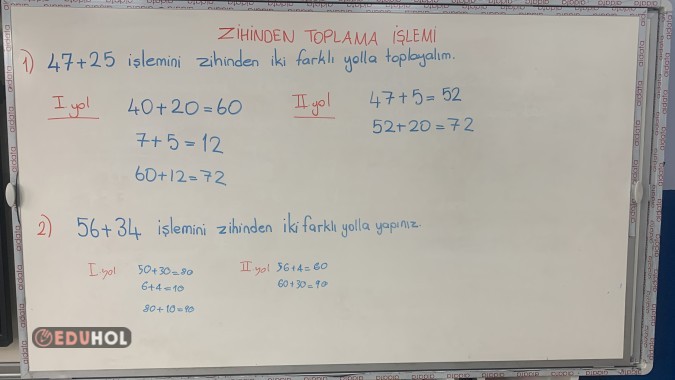 ZİHİNDEN TOPLAMA İŞLEMİ
1) 47+25 işlemini zihinden iki farklı yolla toplayalım.
I yol
40+20=60
7+5=12
60+12=72
II yol
47+5=52
52+20=72
2) 56+34 işlemini zihinden iki farklı yolla yapınız.
I yol
50+30=80
6+4=10
80+10=90
II yol
56+4=60
60+30=90
EDUHOL